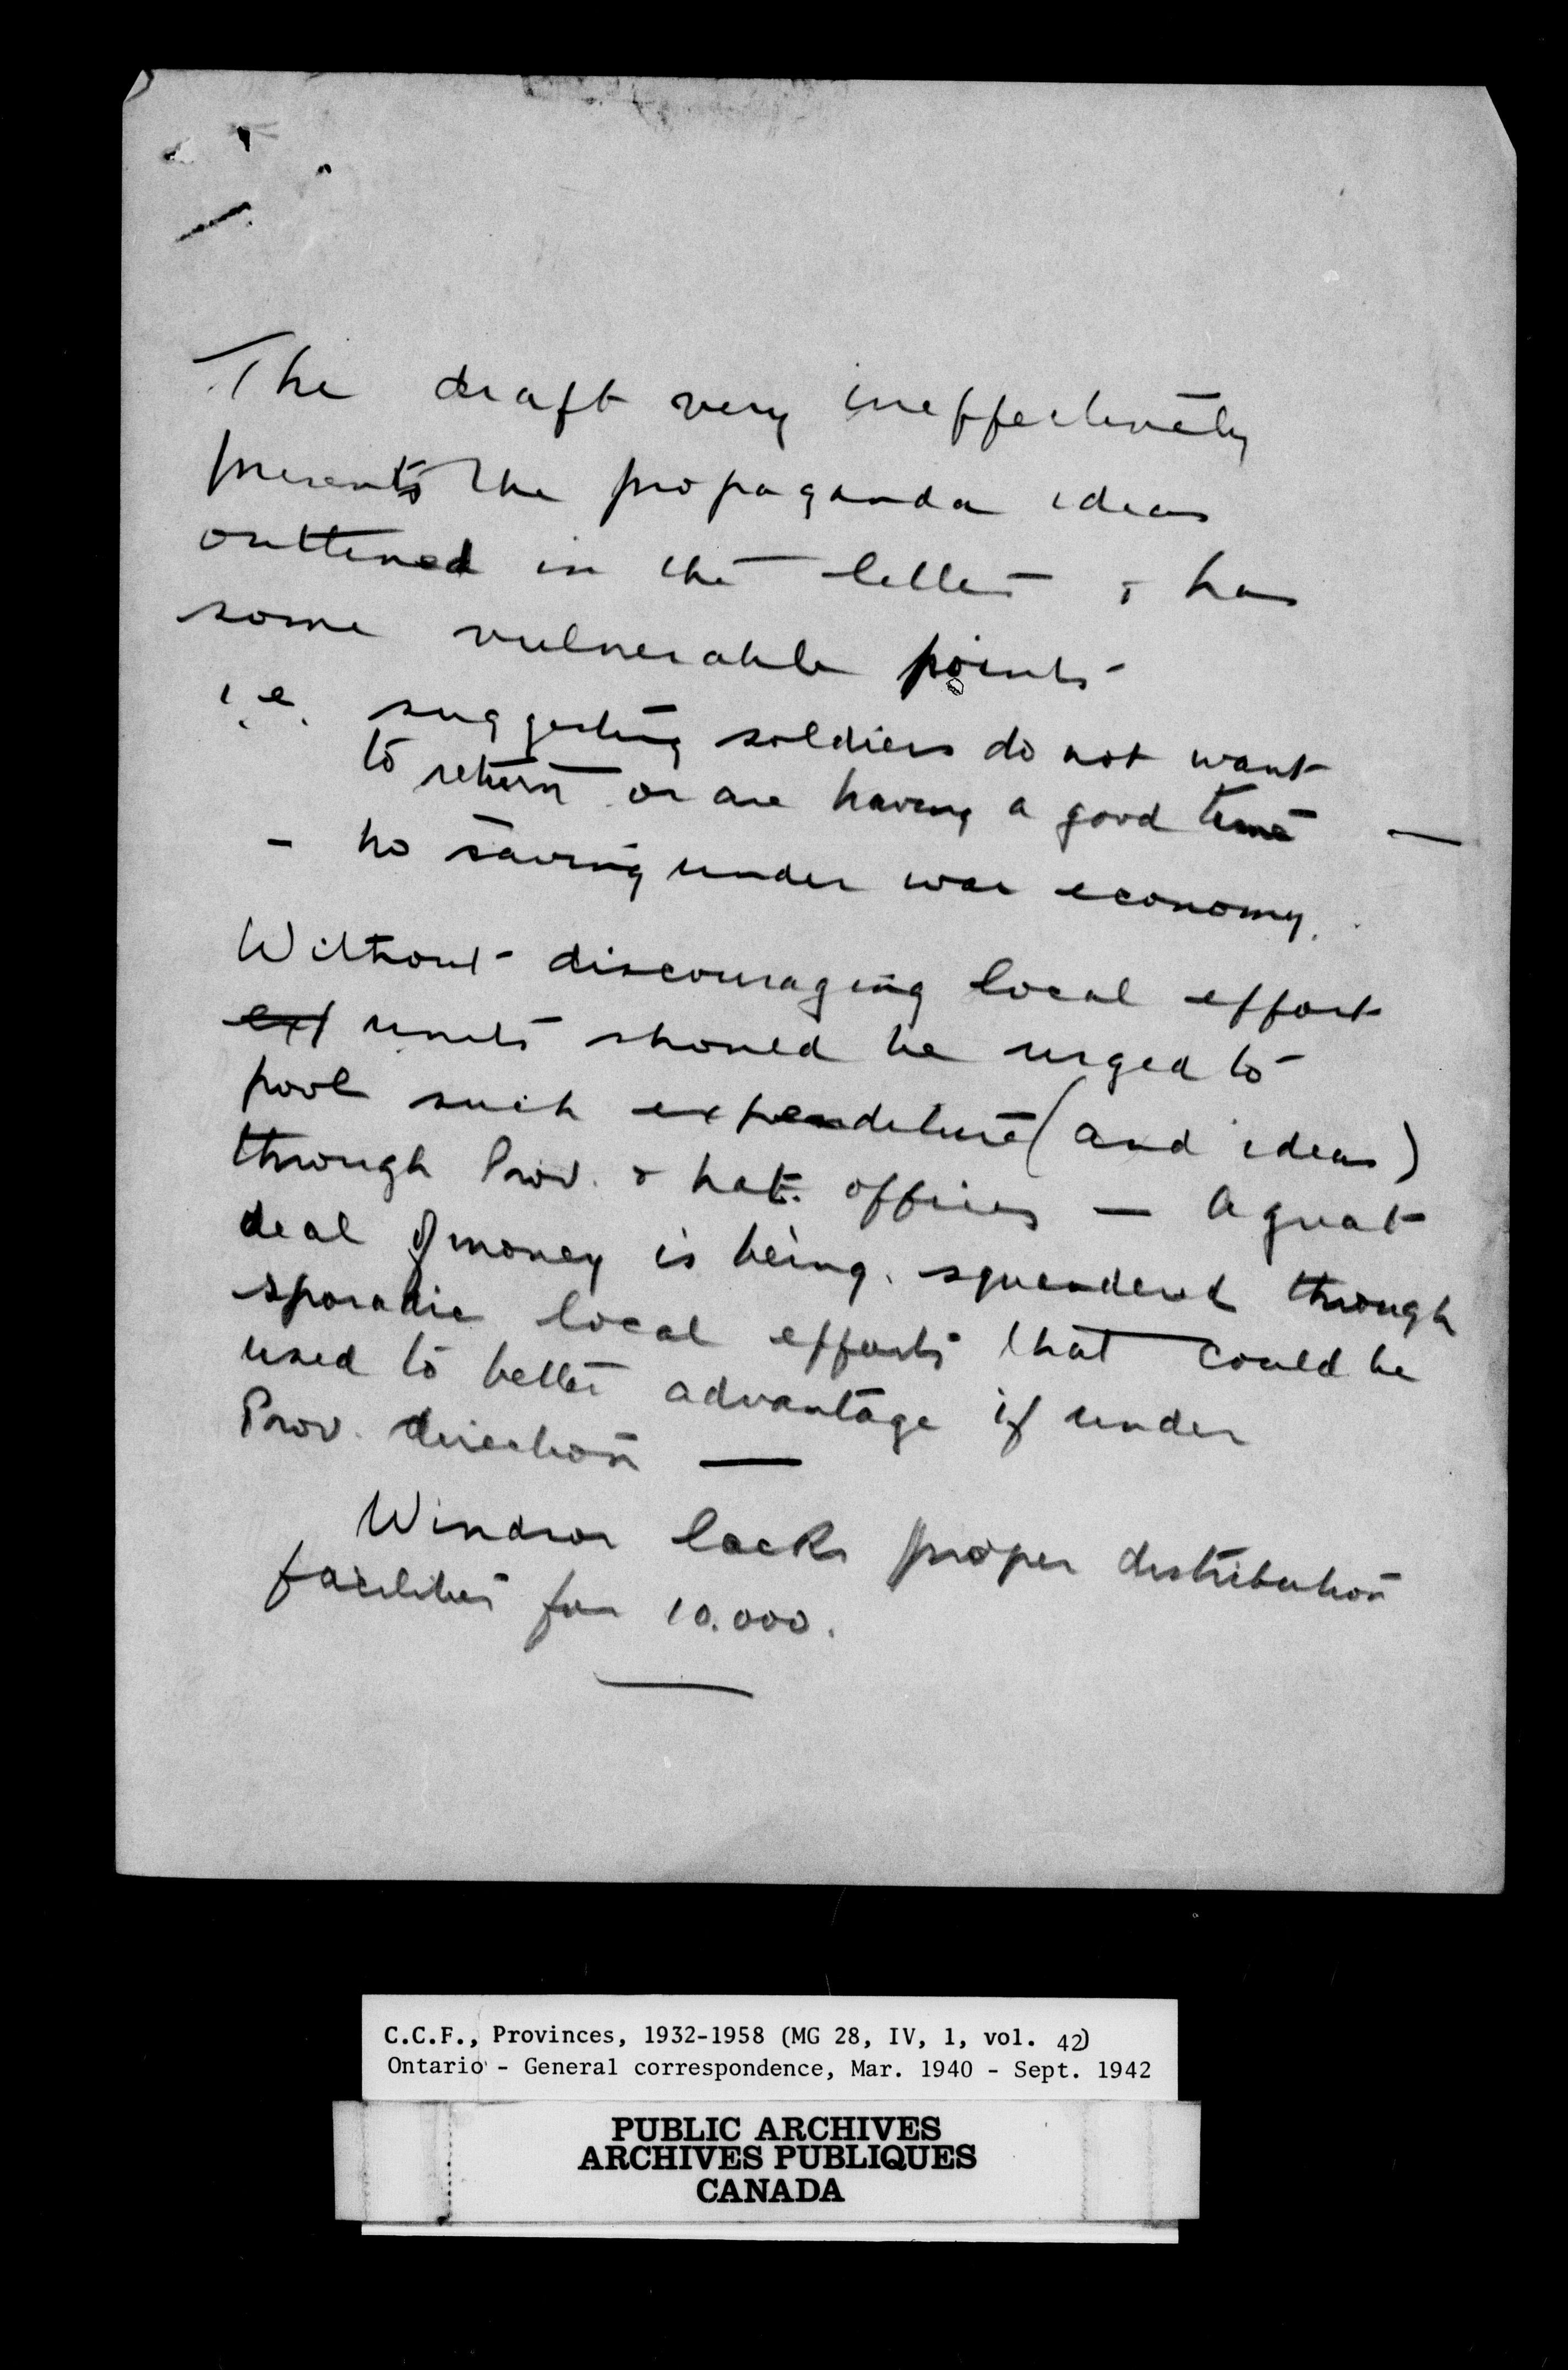 The draft very ineffectively
presents the propaganda ideas
outlined in the letter & has
some vulnerable points
i.e. suggesting soldiers do not want
to return or are having a good time —
- no saving under war economy.
Without discouraging local effort
exp units should be urged to
pool such expenditure (and ideas)
through Prov. & Nat. offices — A great
deal of money is being squandered through
sporadic local efforts that could be
used to better advantage if under
Prov. direction —
Windsor lacks proper distribution
facilities for 10.000.
C.C.F., Provinces, 1932-1958 (MG 28, IV, 1, vol. 42)
Ontario - General correspondence, Mar. 1940 - Sept. 1942
PUBLIC ARCHIVES
ARCHIVES PUBLIQUES
CANADA